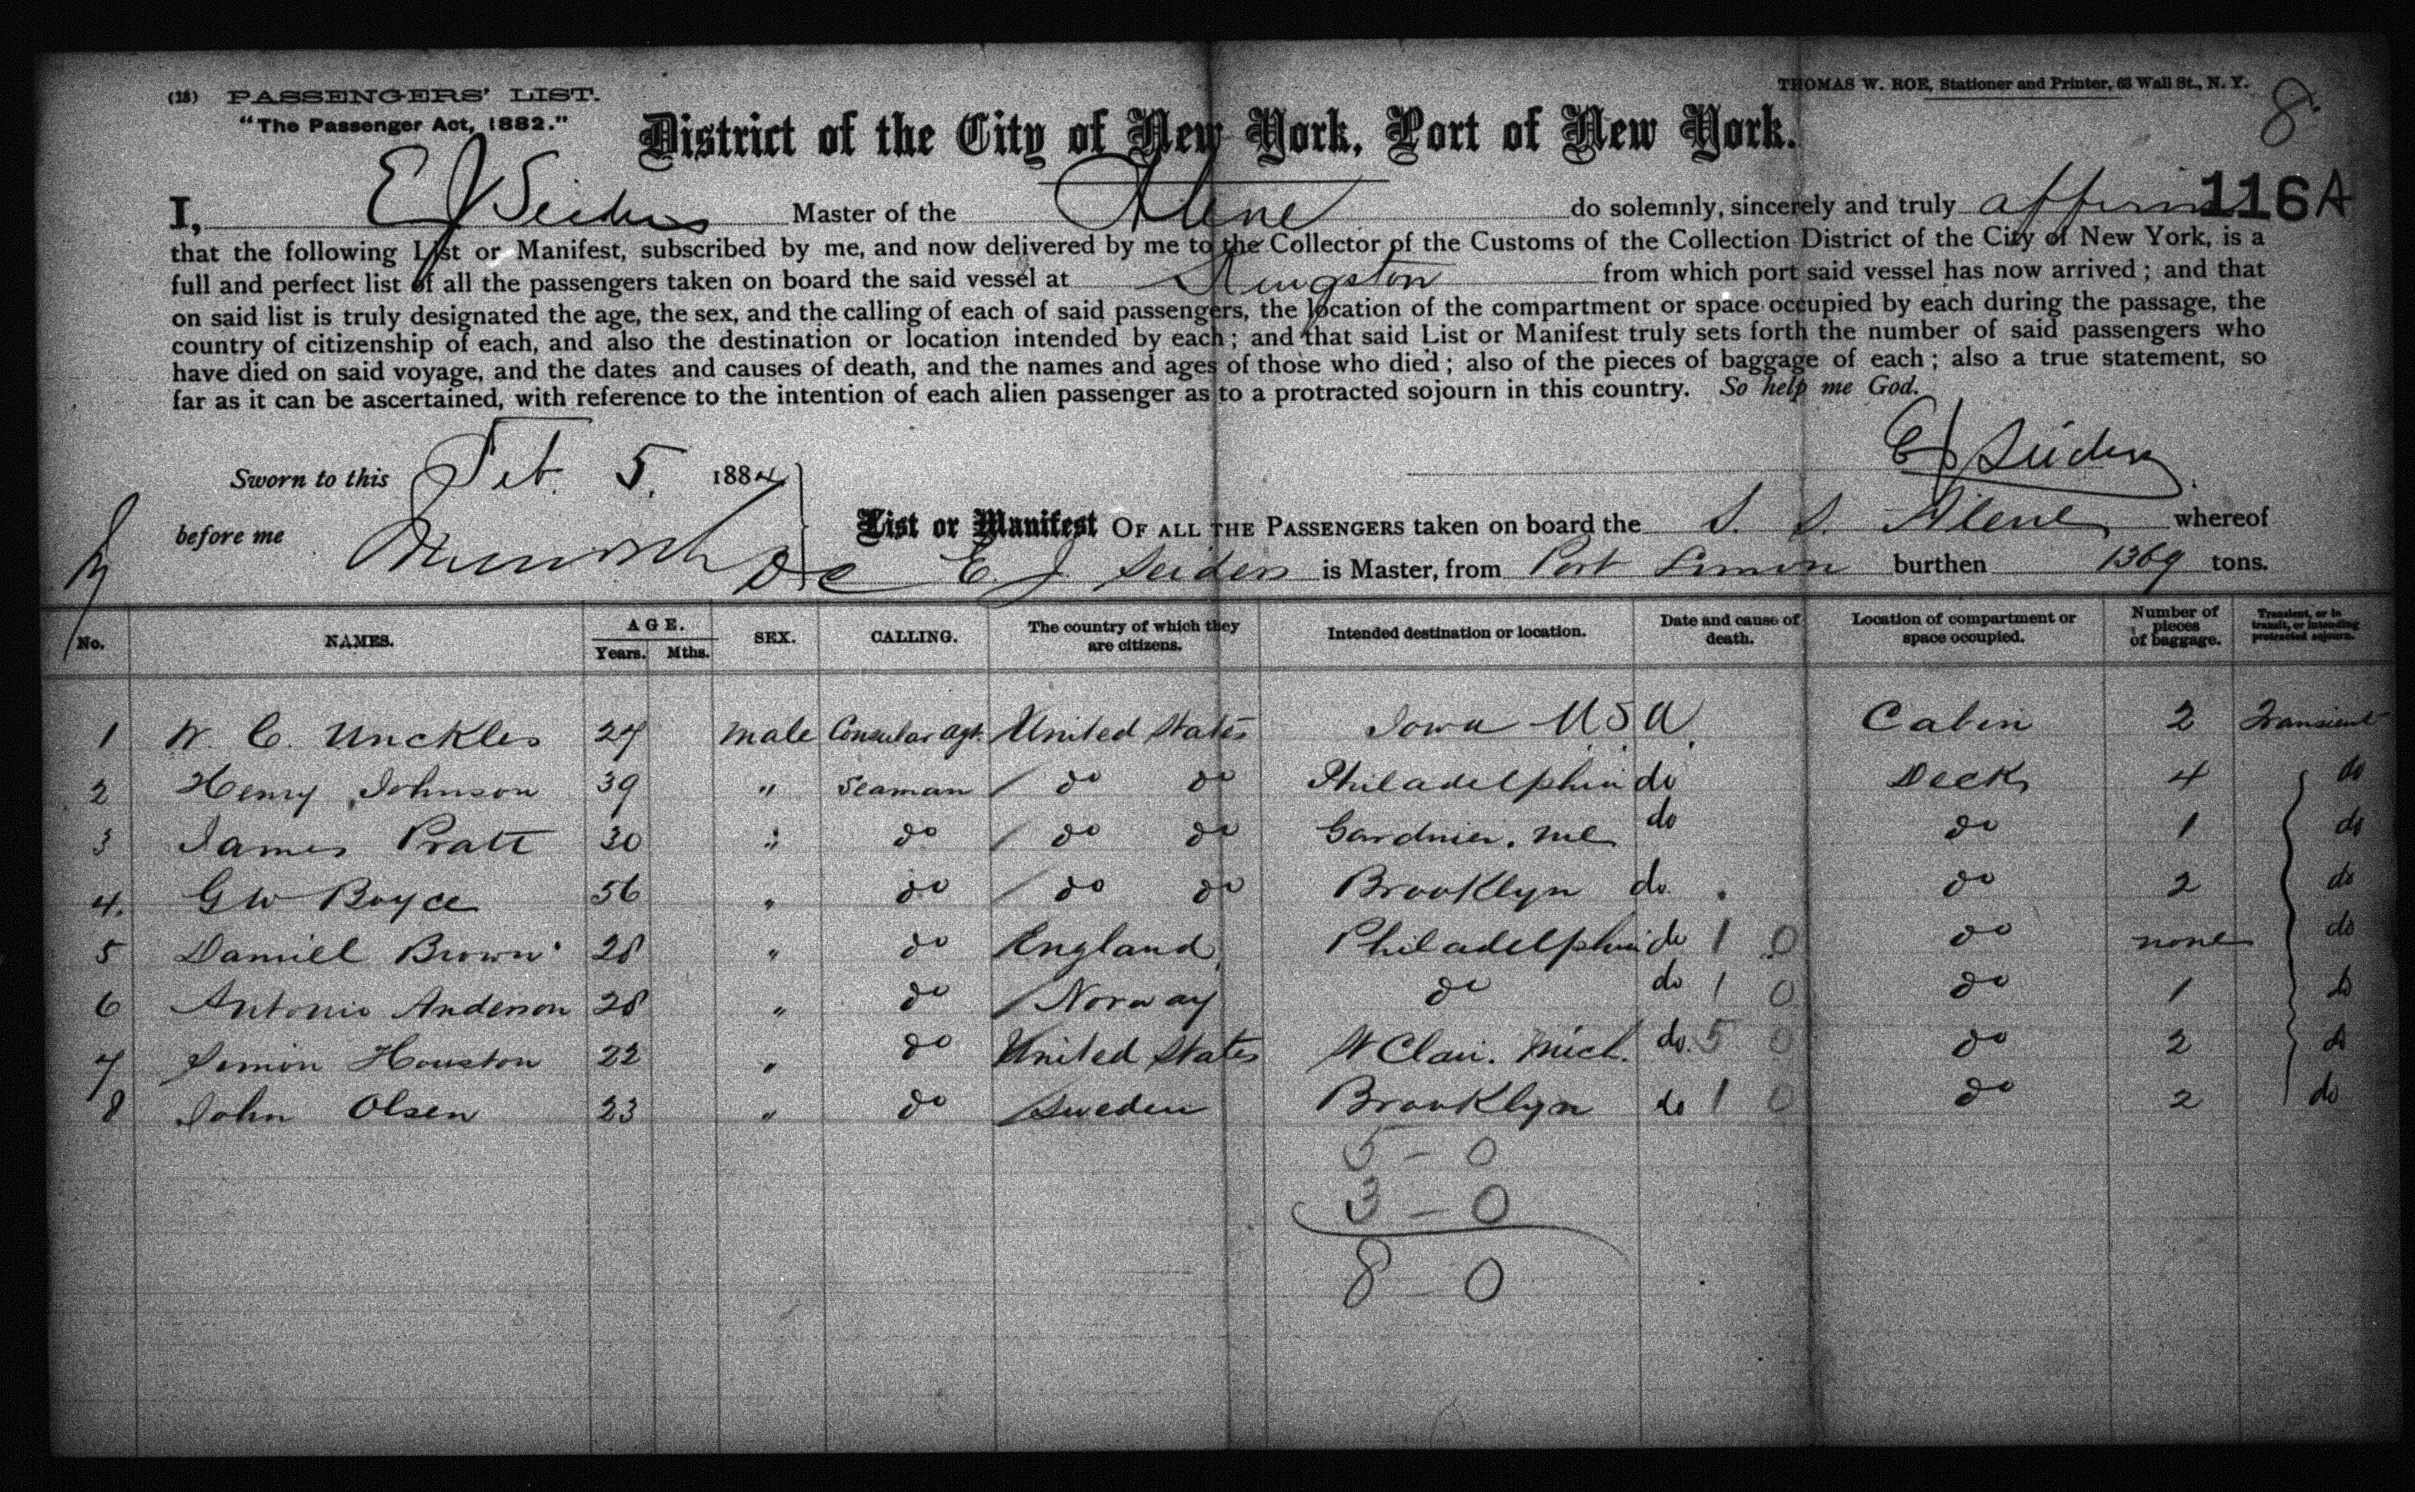 (18) PASSENGERS' LIST.
THOMAS W. ROE, Stationer and Printer, 63 Wall St., N. Y.
8
"The Passenger Act, 1882."
District of the City of New York, Port of New York.
116A
I, E J Seiders Master of the Alene do solemnly, sincerely and truly affirm
that the following List or Manifest, subscribed by me, and now delivered by me to the Collector of the Customs of the Collection District of the City of New York, is a
full and perfect list of all the passengers taken on board the said vessel at Kingston from which port said vessel has now arrived; and that
on said list is truly designated the age, the sex, and the calling of each of said passengers, the location of the compartment or space occupied by each during the passage, the
country of citizenship of each, and also the destination or location intended by each; and that said List or Manifest truly sets forth the number of said passengers who
have died on said voyage, and the dates and causes of death, and the names and ages of those who died; also of the pieces of baggage of each; also a true statement, so
far as it can be ascertained, with reference to the intention of each alien passenger as to a protracted sojourn in this country. So help me God.
E J Seiders
Sworn to this Feb. 5. 1884
before me
List or Manifest OF ALL THE PASSENGERS taken on board the S. S. Alene whereof
E. J. Seiders is Master, from Port Limon burthen 1369 tons.
No. NAMES. AGE. Years. Mths. SEX. CALLING. The country of which they are citizens. Intended destination or location. Date and cause of death. Location of compartment or space occupied. Number of pieces of baggage. Transient, or in transit, or intending protracted sojourn.
1 W. C. Unckles 27 male Consular Agt. United States Iowa U S A. Cabin 2 Transient
2 Henry Johnson 39 " Seaman do do Philadelphia do Deck 4 do
3 James Pratt 30 " do do do Gardnier. Me do do 1 do
4. G W Boyce 56 " do do do Brooklyn do. do 2 do
5 Daniell Brown 28 " do England Philadelphia do 1 0 do none do
6 Antonio Anderson 28 " do Norway do do 1 0 do 1 do
7 Simon Houston 22 " do United States St Clair. Mich. do. 5 0 do 2 do
8 John Olsen 23 " do Sweden Brooklyn do 1 0 do 2 do
5 - 0
3 - 0
8 - 0